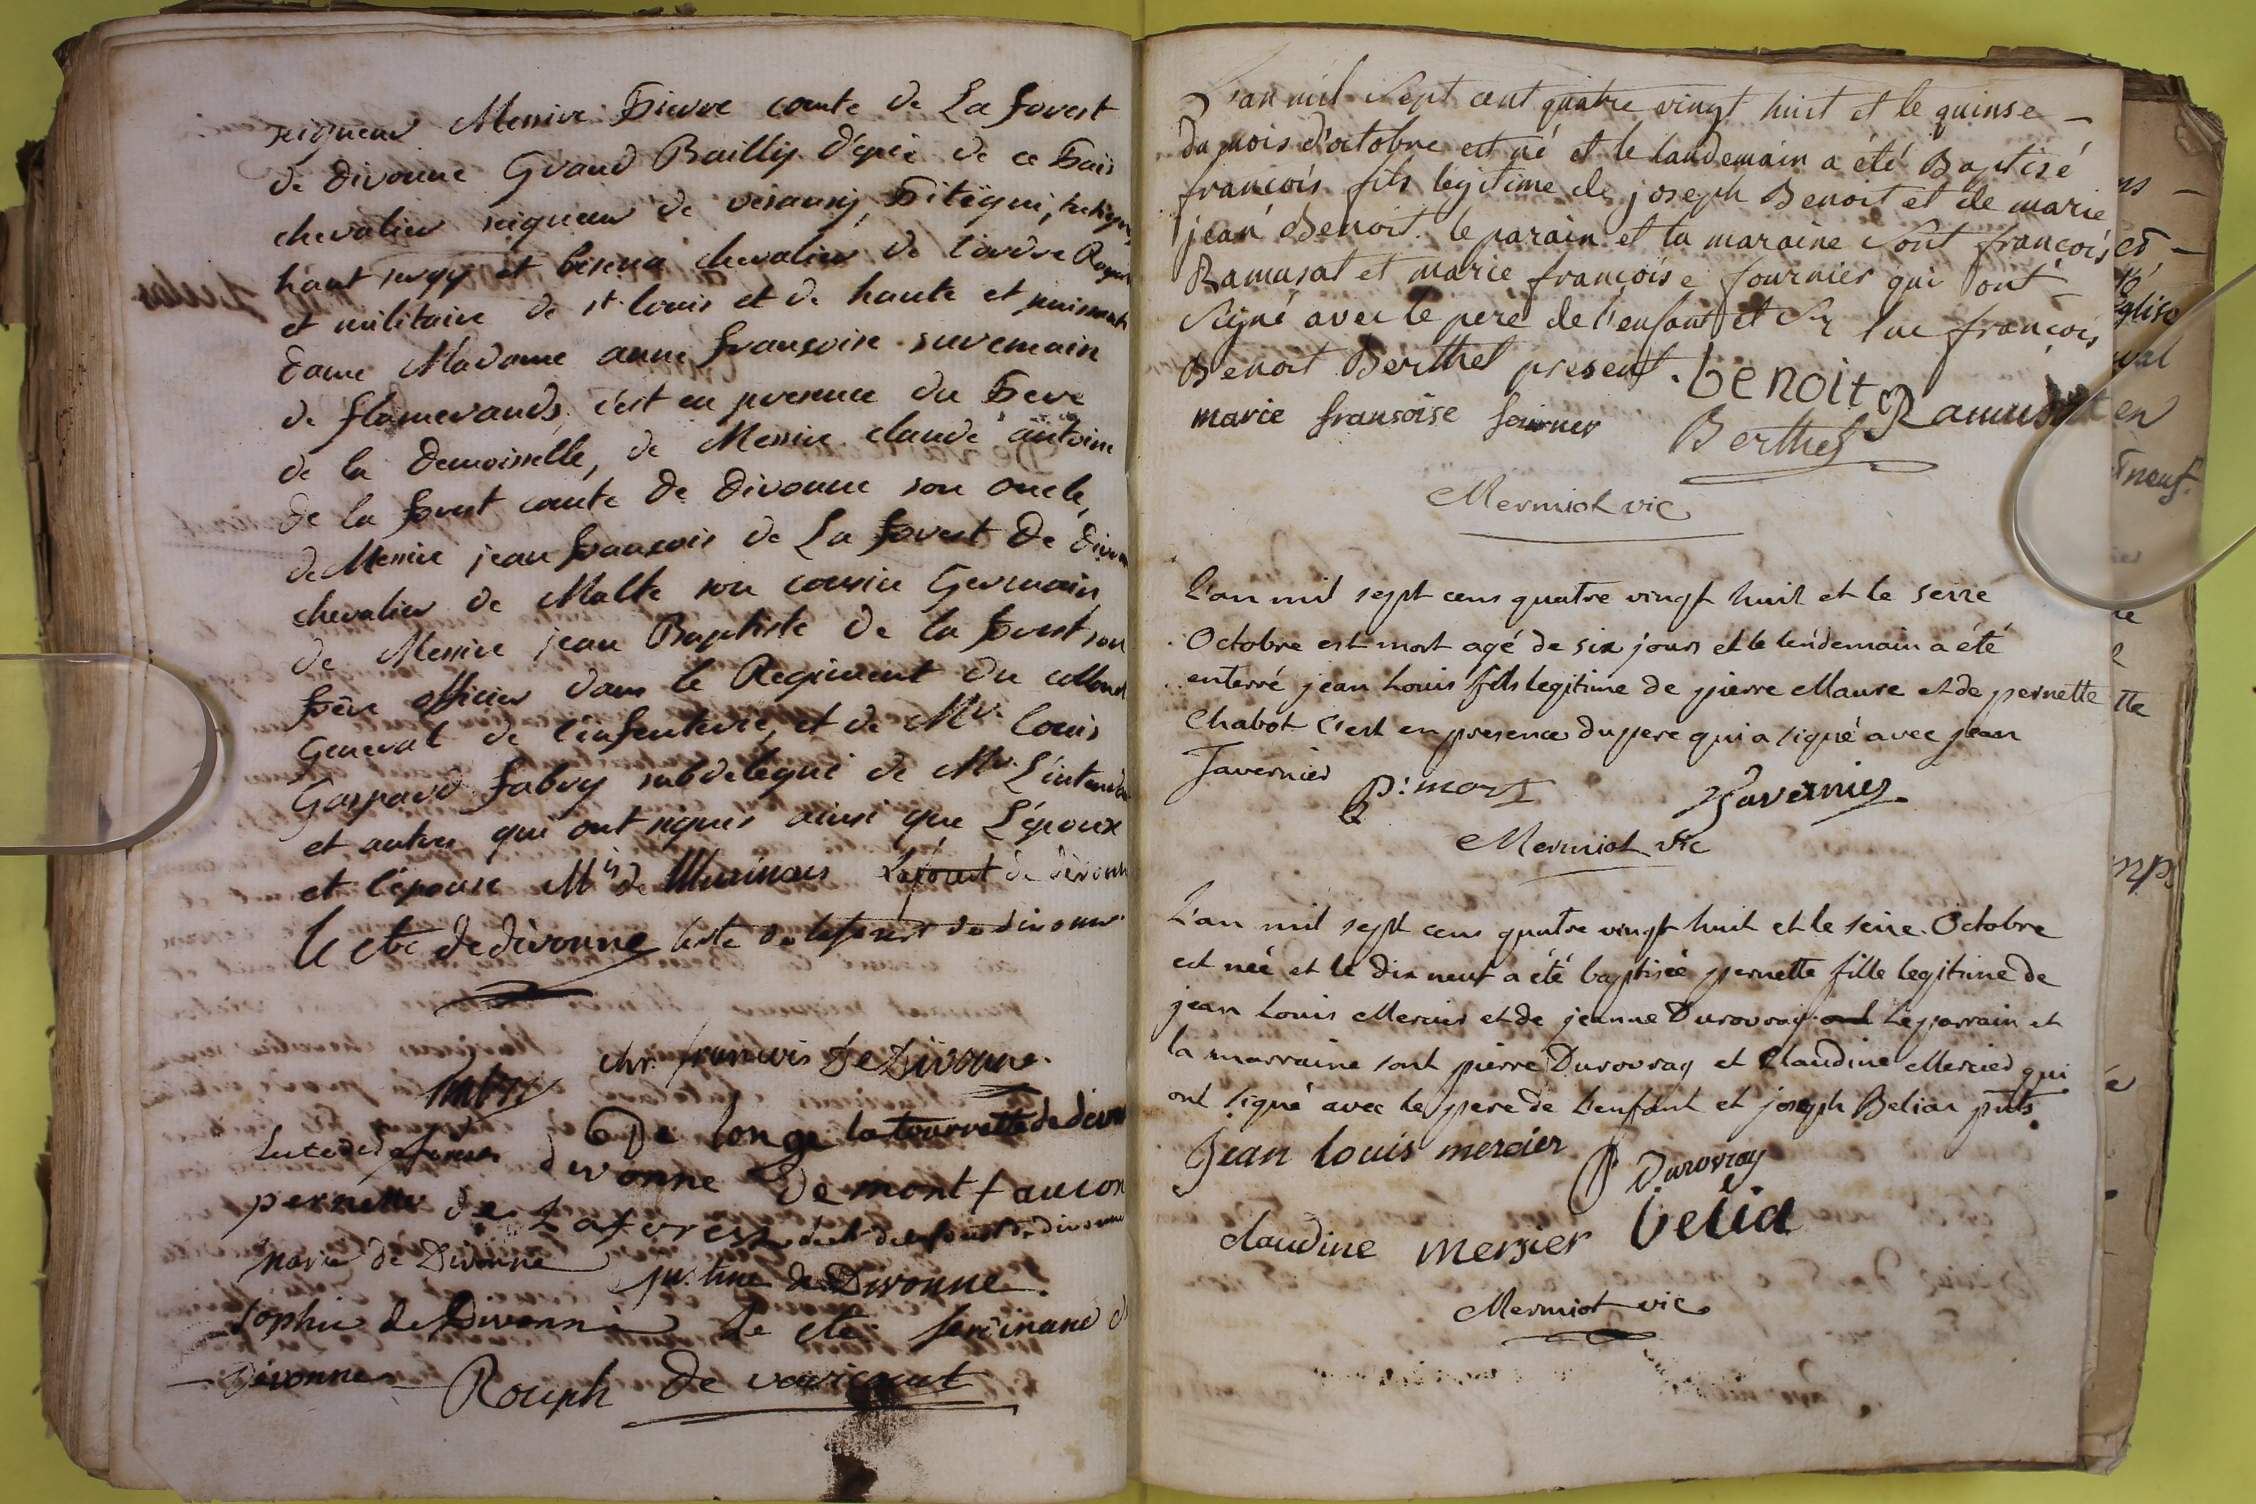 seigneur Messire Pierre comte de La forest
de divonne Grand Bailly d'épée de ce Païs
chevalier seigneur de vesancy, Pitëgni,
haut sergy et chevalier de l'ordre Royal
et militaire de st. louis et de haute et puissante
dame Madame anne fransoise suremain
de flamerands, c'est en presence du Pere
de la demoiselle, de Messire claude antoine
de la forest comte de divonne son oncle,
de Messire jean françois de La forest de divonne
chevalier de Malte son cousin Germain,
de Messire jean Baptiste de la forest son
frère officier dans le Regiment du collonel
General de l'infenterie, et de Mr. louis
Gaspard fabry subdelegué de Mr. L'intendan
et autres qui ont signés ainsi que L'époux
et l'épouse Mis de Murinais Laforest de divonne
le cte de divonne de laforest de divonne
chr. francois De Divonne.
fabry
De longe la tourrette de divon
divonne de montfaucon
pernette de Laforest de laforest de divonne
marie de Divonne justine de Divonne.
sophie de Divonne le cte ferdinand de
Divonne Rouph de varicourt
L'an mil sept cent quatre vingt huit et le quinse
du mois d'octobre est né et le landemain a été Baptisé
françois fils legitime de joseph Benoit et de marie
jean Benoit. le parain et la maraine sont françois
Ramusat et marie françoise fournier qui ont
signé avec le père de l'enfant et Sr luc françois
Benoit Berthet présent. benoit Ramusat
marie fransoise fournier Berthet
Mermiot vic
L'an mil sept cens quatre vingt huit et le seize
Octobre est mort agé de six jours et le lendemain a été
enterré jean Louis fils legitime de pierre Maure et de pernette
Chabot c'est en presence du pere qui a signé avec jean
Tavernier P: mort Tavernier
Mermiot vic
L'an mil sept cens quatre vingt huit et le seize Octobre
est née et le dix neuf a été baptisée pernette fille legitime de
jean Louis Mercier et de jeanne Durovray ont Le parrain et
la marraine sont pierre Durovray et Claudine Mercier qui
ont signé avec le pere de l'enfant et joseph Belian pnts.
Jean louis mercier P Durovray
claudine mersier belia
Mermiot vic